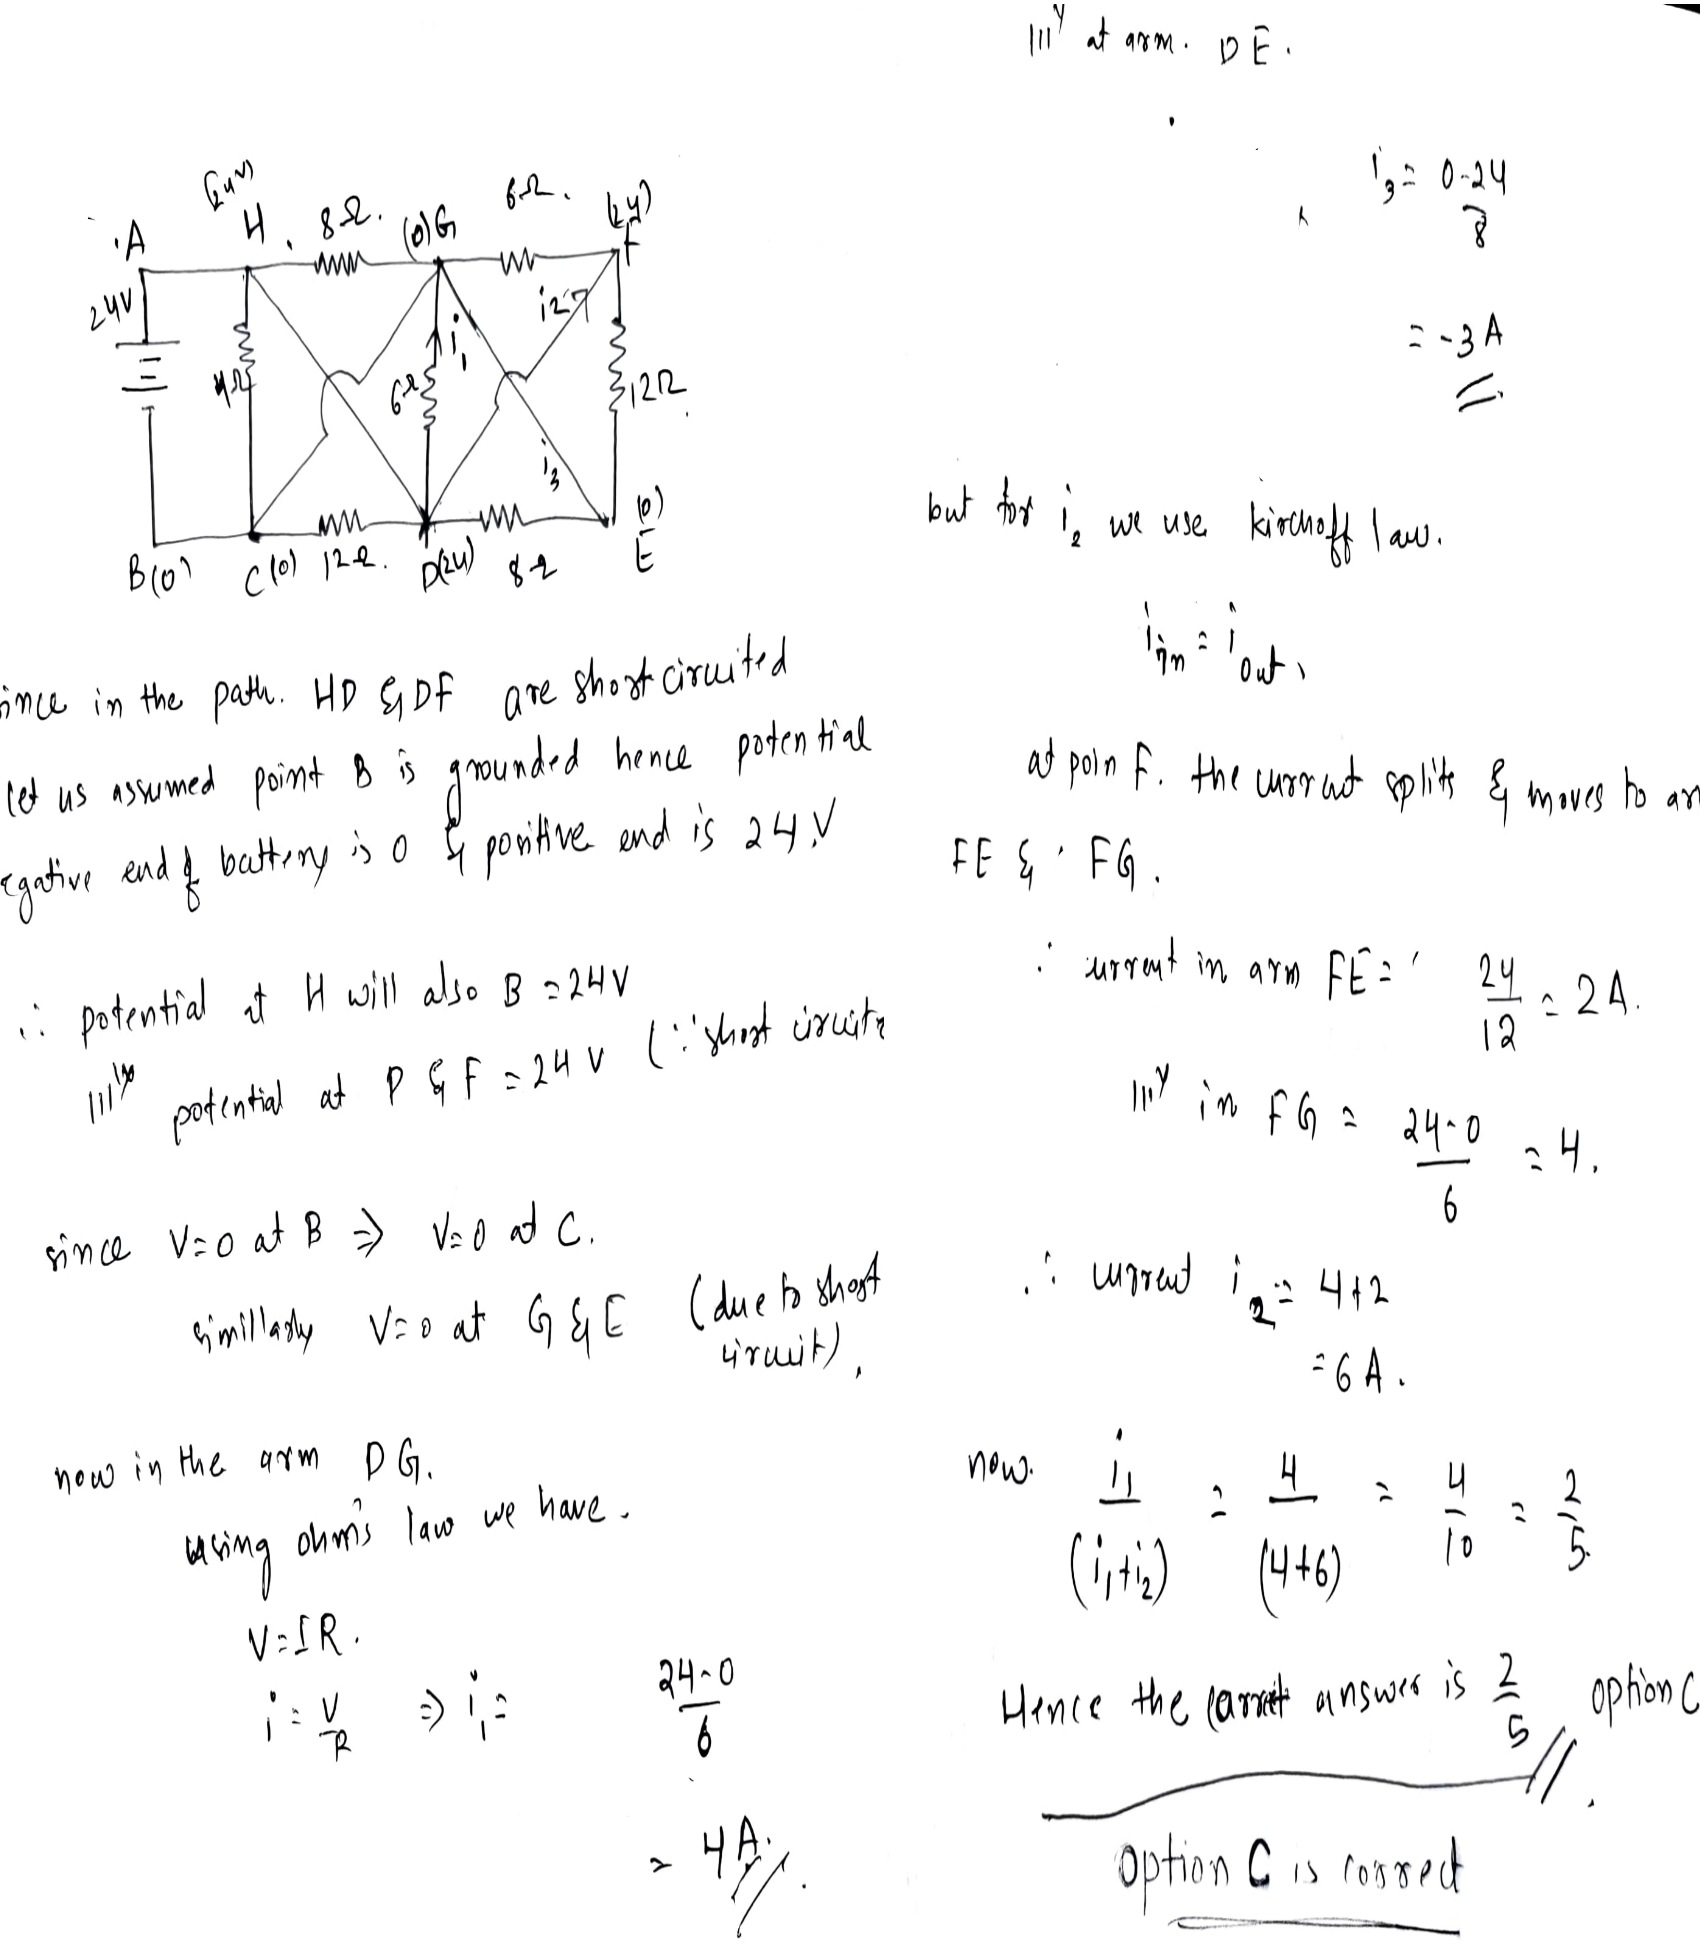 (24V)
A H 8Ω. (0)G 6Ω. (24) F
24V
4Ω 6Ω i1 i2 12Ω
i3
B(0) C(0) 12Ω. D(24) 8Ω (0) E
ince in the path. HD & DF are short circuited
let us assumed point B is grounded hence potential
egative end of battery is 0 & positive end is 24V
∴ potential at H will also B = 24V
lllly potential at P & F = 24V (∵ short circuit
since V=0 at B ⇒ V=0 at C.
simillarly V=0 at G & E (due to short circuit).
now in the arm DG.
using ohm's law we have.
V=IR.
i = V/R ⇒ i1 = 24-0/6
= 4A.
llly at arm. DE.
i3 = 0-24/8
= -3A
but for i2 we use kirchoff law.
iin = iout.
at poin F. the currut splits & moves to ar
FE & FG.
∴ urrent in arm FE = 24/12 = 2A.
llly in FG = 24-0/6 = 4.
∴ current i2 = 4+2
= 6A.
now. i1/(i1+i2) = 4/(4+6) = 4/10 = 2/5.
Hence the answer is 2/5 option C
option C is correct